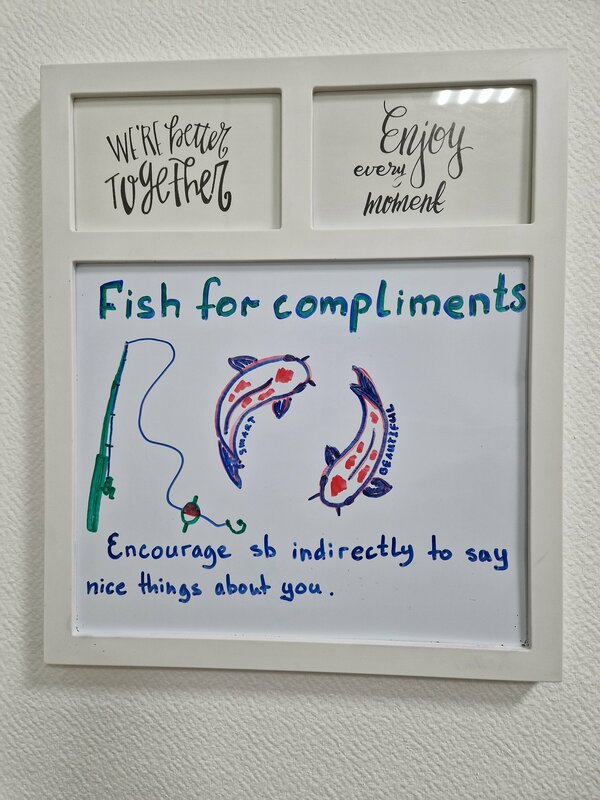 WE'RE better
TOgether
Enjoy
every
moment
Fish for compliments
SMART
BEAUTIFUL
Encourage sb indirectly to say
nice things about you.